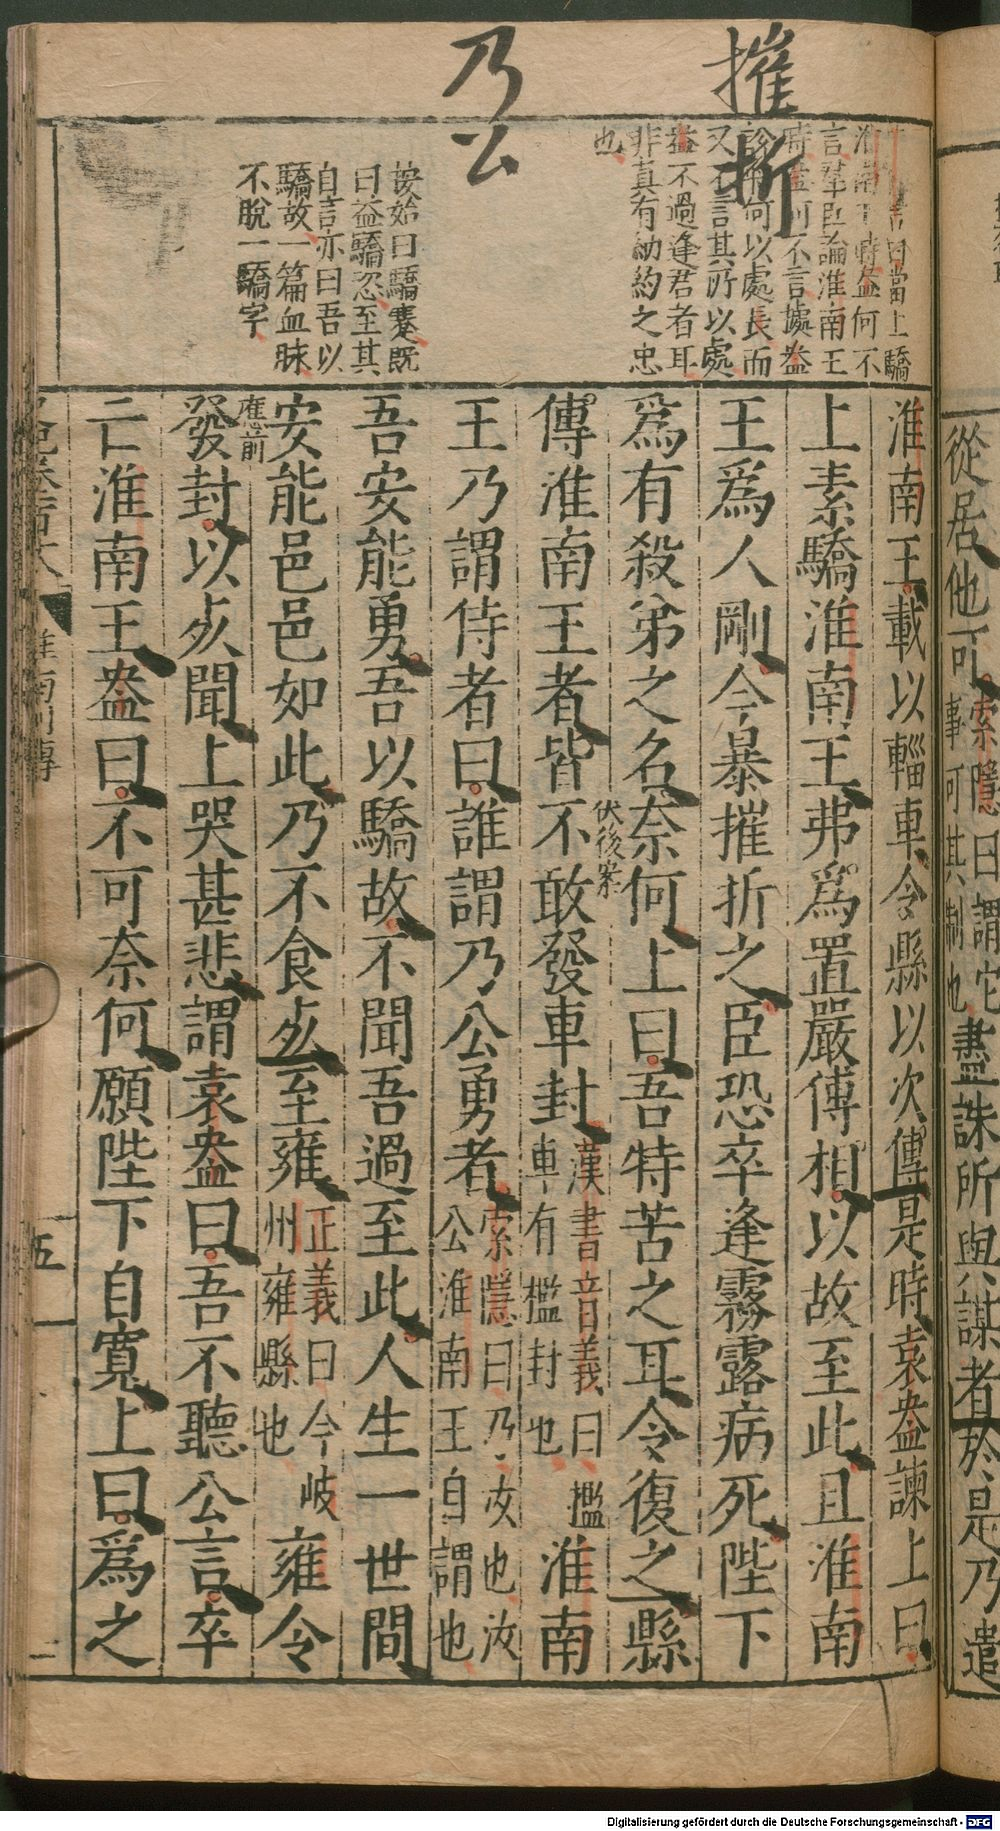 從居他可索隱曰謂它事可其制也盡誅所與謀者於是乃遣
摧折
乃公
當上驕
淮南王時盎何不
言群臣論淮南王
時盎何不言據盎
說何以處長而
又不言其所以處
盎不過逢君者耳
非真有納約之忠
也
按始曰驕蹇既
曰益驕恣至其
自言亦曰吾以
驕故一篇血脉
不脫一驕字
淮南王載以輜車令縣以次傳是時袁盎諫上曰
上素驕淮南王弗爲置嚴傅相以故至此且淮南
王爲人剛今暴摧折之臣恐卒逢霧露病死陛下
爲有殺弟之名奈何上曰吾特苦之耳令復之縣
伏後案
傳淮南王者皆不敢發車封漢書音義曰檻車有檻封也淮南
王乃謂侍者曰誰謂乃公勇者索隱曰乃汝也汝公淮南王自謂也
吾安能勇吾以驕故不聞吾過至此人生一世間
安能邑邑如此乃不食死至雍正義曰今岐州雍縣也雍令
應前
發封以死聞上哭甚悲謂袁盎曰吾不聽公言卒
亡淮南王盎曰不可奈何願陛下自寬上曰爲之
淮南列傳
五
Digitalisierung gefördert durch die Deutsche Forschungsgemeinschaft - DFG